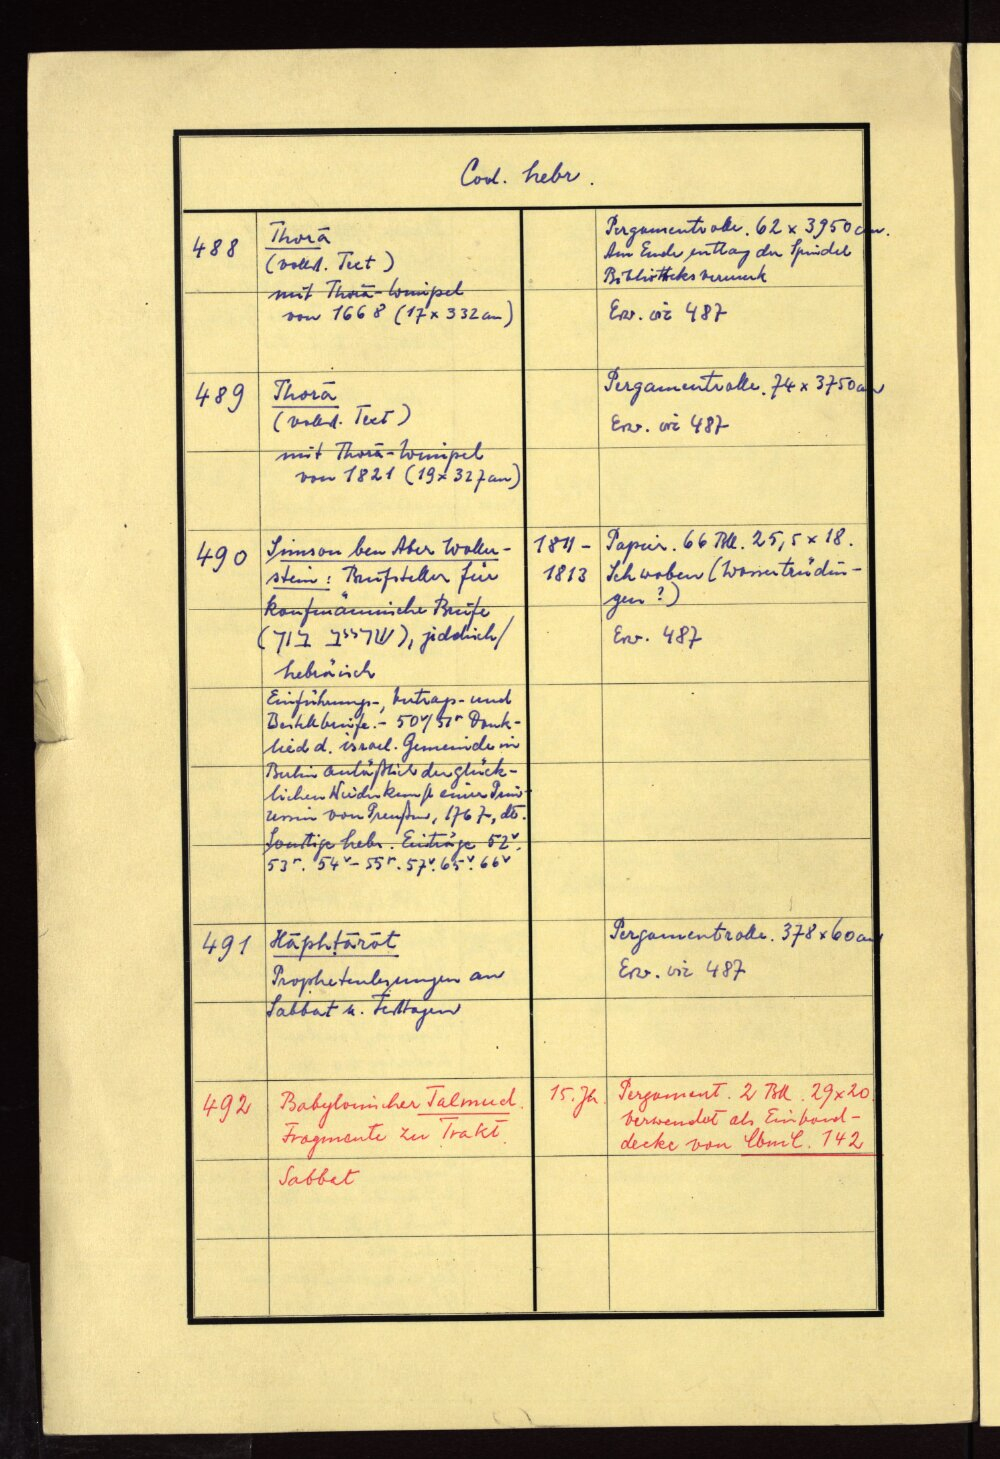 Cod. hebr.
488
Thorā
(vollst. Text)
mit Thorā-Wimpel
von 1668 (17 x 332 cm)
Pergamentrolle. 62 x 3950 cm.
Am Ende entlang der Spindel
Bibliotheksvermerk
Erw. wie 487
489
Thorā
(vollst. Text)
mit Thorā-Wimpel
von 1821 (19 x 327 cm)
Pergamentrolle. 74 x 3750 cm
Erw. wie 487
490
Simson ben Aber Woller-
stein: Briefsteller für
kaufmännische Briefe
(שרייב בוך), jiddisch/
hebräisch
Einführungs-, Vertrags- und
Bestellbriefe. - 50v/51r Dank-
lied d. israel. Gemeinde in
Berlin anläßlich der glück-
lichen Niederkunft einer Prin-
zessin von Preußen, 1767, dt.
Sonstige hebr. Einträge 52v.
53r. 54v - 55r. 57v. 65v. 66v
1811 -
1813
Papier. 66 Bll. 25,5 x 18.
Schwaben (Wassertrüdin-
gen?)
Erw. 487
491
Hāphtārōt
Prophetenlesungen an
Sabbat u. Festtagen
Pergamentrolle. 378 x 60 cm
Erw. wie 487
492
Babylonischer Talmud.
Fragmente zu Trakt.
Sabbat
15. Jh.
Pergament. 2 Bll. 29 x 20.
verwendet als Einband-
decke von Cbm C. 142